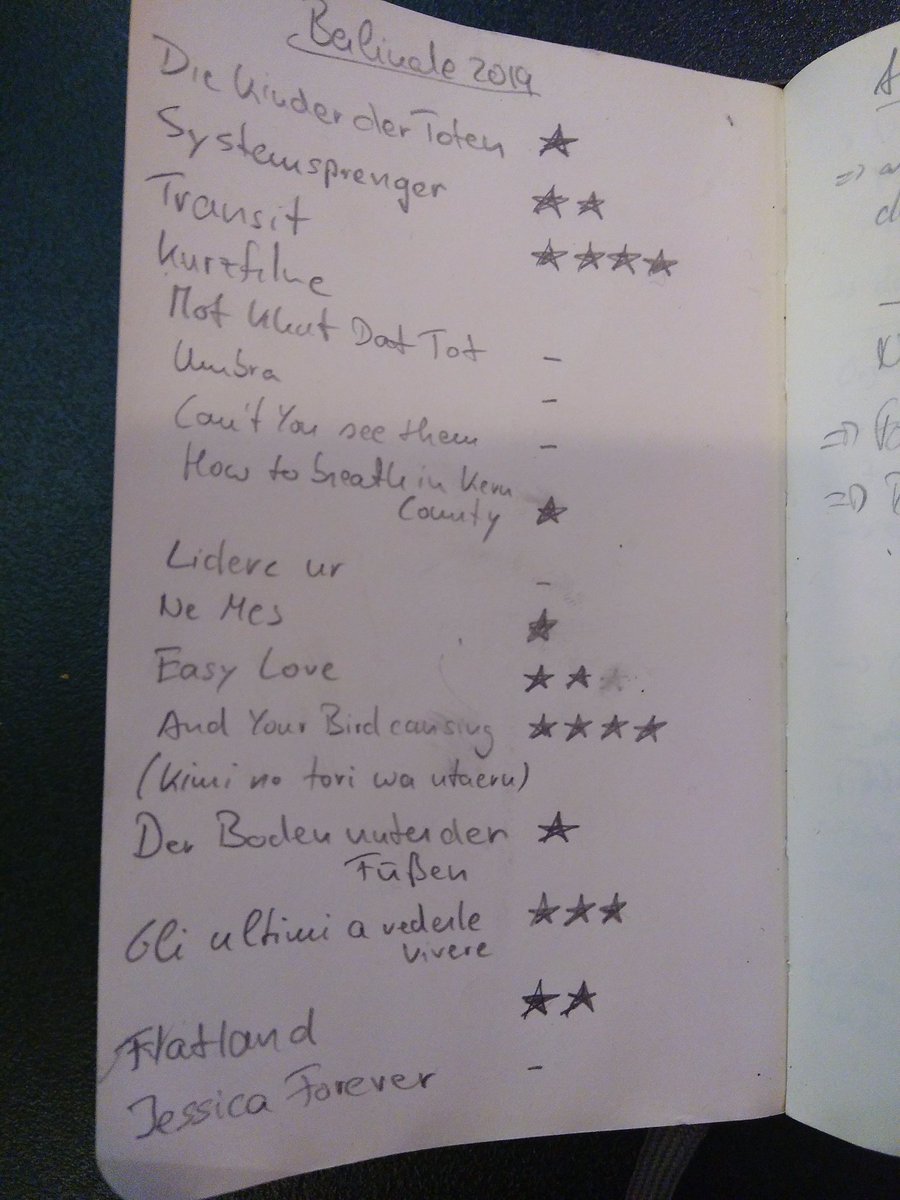 Berlinale 2019
Die Kinder der Toten ★
Systemsprenger ★★
Transit ★★★★
Kurzfilme
Mot Khut Dat Tot -
Umbra -
Can't You see them -
How to breath in Kern
County ★
Lidere ur -
Ne Mes ★
Easy Love ★★
And Your Bird can sing ★★★★
(Kimi no tori wa utaeru)
Der Boden unter den ★
Füßen
Gli ultimi a vederle ★★★
vivere
Flatland ★★
Jessica Forever -